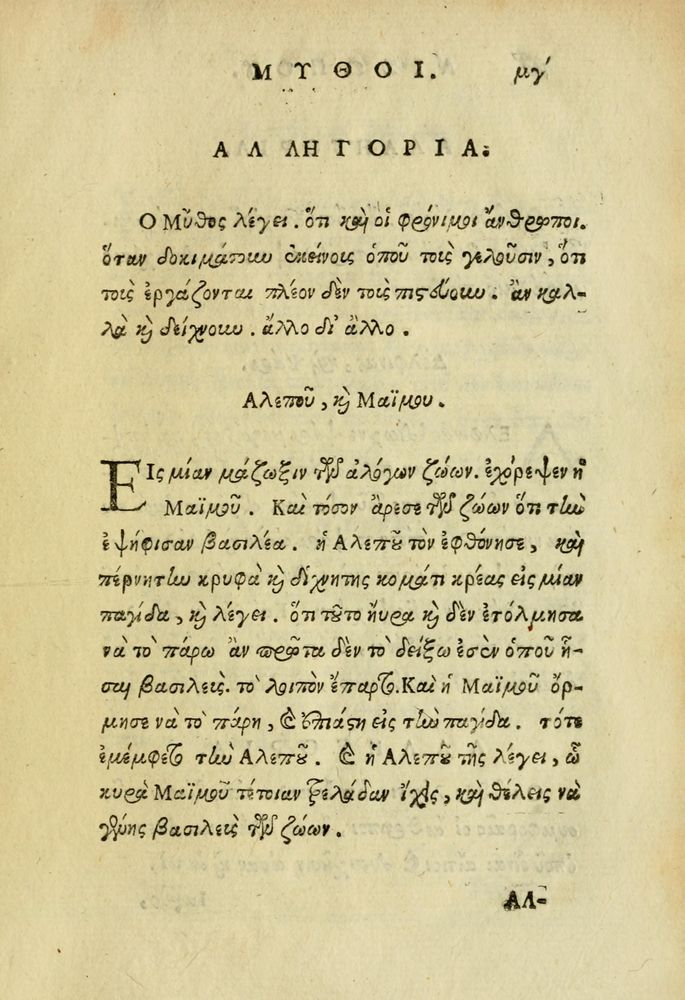 ΜΥΘΟΙ. μγ´
ΑΛΛΗΓΟΡΙΑ.
Ο Μῦθος λέγει. ὅτι καὶ οἱ φρόνιμοι ἄνθρωποι.
ὅταν δοκιμάσουν ἐκείνοις ὁποῦ τοὶς γελοῦσιν, ὅτι
τοὶς ἐργάζονται πλέον δὲν τοὶς πιστεύουν. ἂν καλ-
λὰ κὶ δείχνουν. ἄλλο δι' ἄλλο.
Αλεποῦ, κὶ Μαϊμου.
ΕΙς μίαν μάζωξιν τῶν ἀλόγων ζώων. ἐχόρεψεν ἡ
Μαϊμοῦ. Καὶ τόσον ἄρεσε τῶν ζώων ὅτι τὴν
ἐψήφισαν βασιλέα. ἡ Αλεποῦ τὸν ἐφθόνησε, καὶ
πέρνητην κρυφὰ κὶ δίχνητης κομάτι κρέας εἰς μίαν
παγίδα, κὶ λέγει. ὅτι τοῦτο ἤυρα κὶ δὲν ἐτόλμησα
νὰ τὸ πάρω ἂν πρῶτα δὲν τὸ δείξω ἐσὲν ὁποῦ ἦ-
σαι βασιλεὶς. τὸ λοιπὸν ἔπαρτο. Καὶ ἡ Μαϊμοῦ ὅρ-
μησε νὰ τὸ πάρη, καὶ ἐπιάσθη εἰς τὴν παγίδα. τότε
ἐμέμφετο τὴν Αλεποῦ. καὶ ἡ Αλεποῦ τῆς λέγει, ὦ
κυρὰ Μαϊμοῦ τέτοιαν ξελάδαν ἴχῃς, καὶ θέλεις νὰ
γένης βασιλεὶς τῶν ζώων.
ΑΛ-